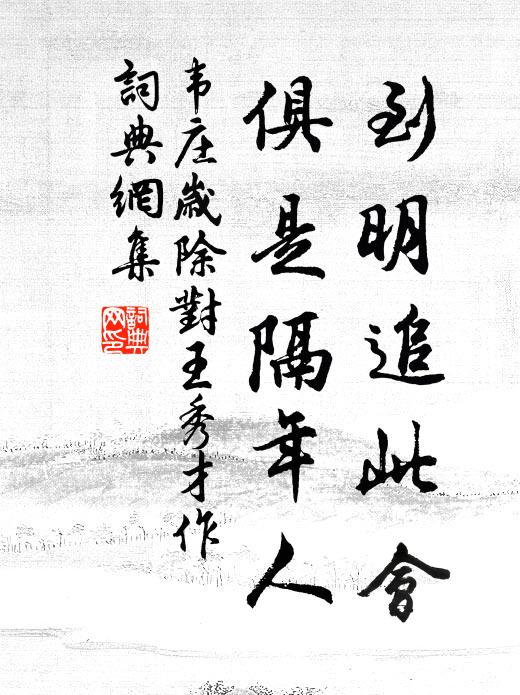 到明追此會
俱是隔年人
韦庄歲除對王秀才作
詞典網集
詞典网印